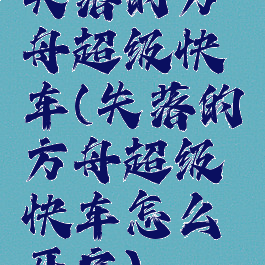 失落的方
舟超级快
车(失落的
方舟超级
快车怎么